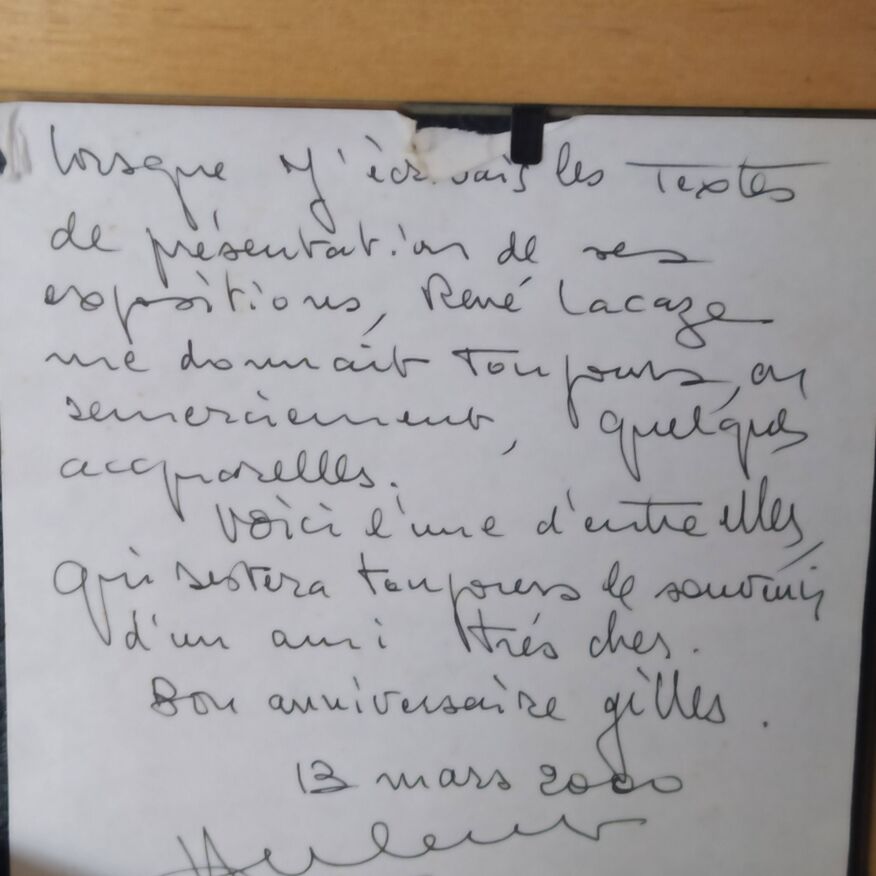 lorsque j'écrivais les Textes
de présentation de ses
expositions, René Lacaze
me donnait toujours, en
remerciement, quelques
acquarelles.
Voici l'une d'entre elles,
qui restera toujours le souvenir
d'un ami très cher.
Bon anniversaire gilles.
13 mars 2000